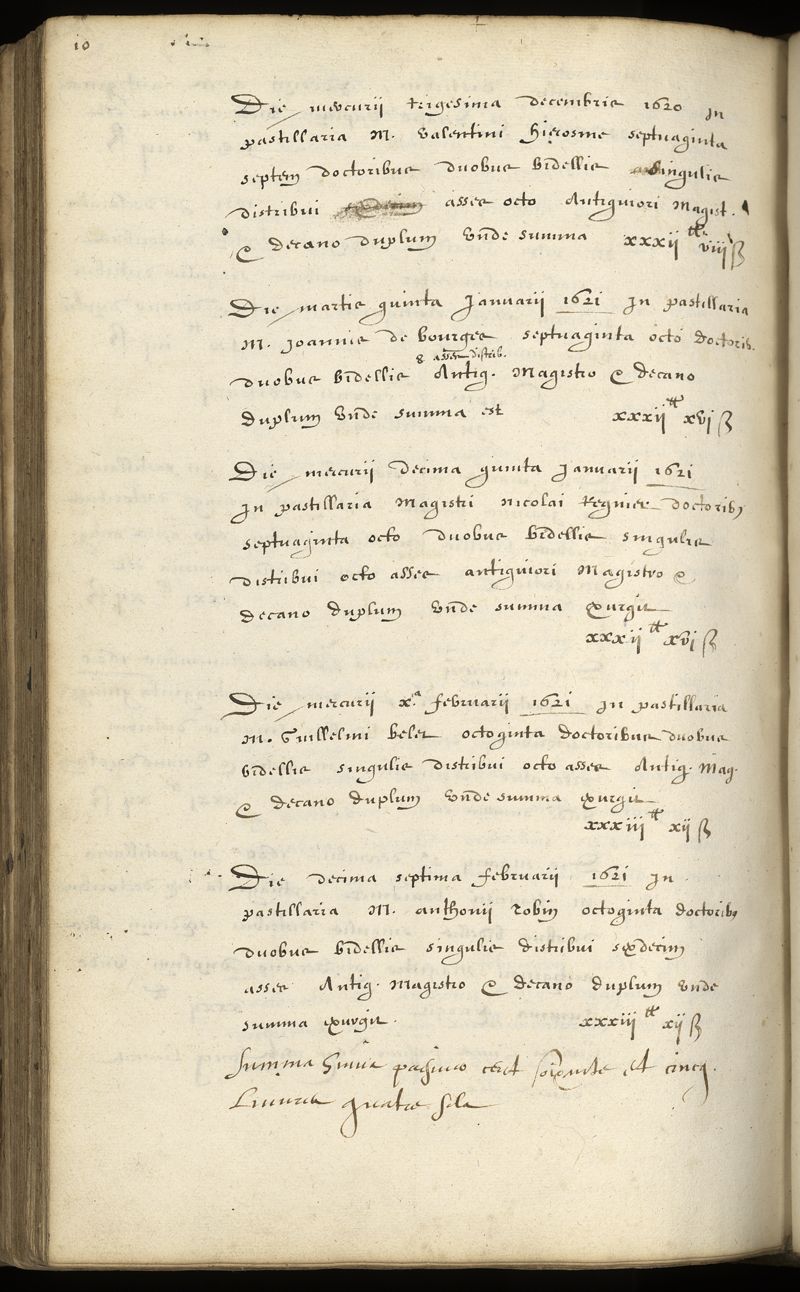 10
Die mercurii trigesima decembris 1620 In
pastillaria M. Valentini hierosme septuaginta
septem doctoribus duobus bidellis singulis
distribui asses octo Antiquiori Magist.
& decano duplum unde summa xxxii tt viii ß
Die martis quinta Januarii 1621 In pastillaria
M. Joannis de bourges septuaginta octo doctorib.
8 asses distrib.
duobus bidellis Antiq. Magistro & decano
duplum unde summa est xxxii tt xvi ß
Die mercurii decima quinta Januarii 1621
In pastillaria Magistri nicolai Regnier doctorib
septuaginta octo duobus bidellis singulis
distribui octo asses antiquiori Magistro &
decano duplum unde summa exurgit
xxxii tt xvi ß
Die mercurii x.a februarii 1621 In pastillaria
M. Guillelmi belet octoginta doctoribus duobus
bidellis singulis distribui octo asses Antiq. Mag.
& decano duplum unde summa exurgit
xxxiii tt xii ß
Die decima septima februarii 1621 In
pastillaria M. anthonii robin octoginta doctorib
duobus bidellis singulis distribui sexdecim
asses Antiq. Magistro & decano duplum unde
summa exurgit. xxxiii tt xii ß
Summa cent soixante et cinq.
quatre solz